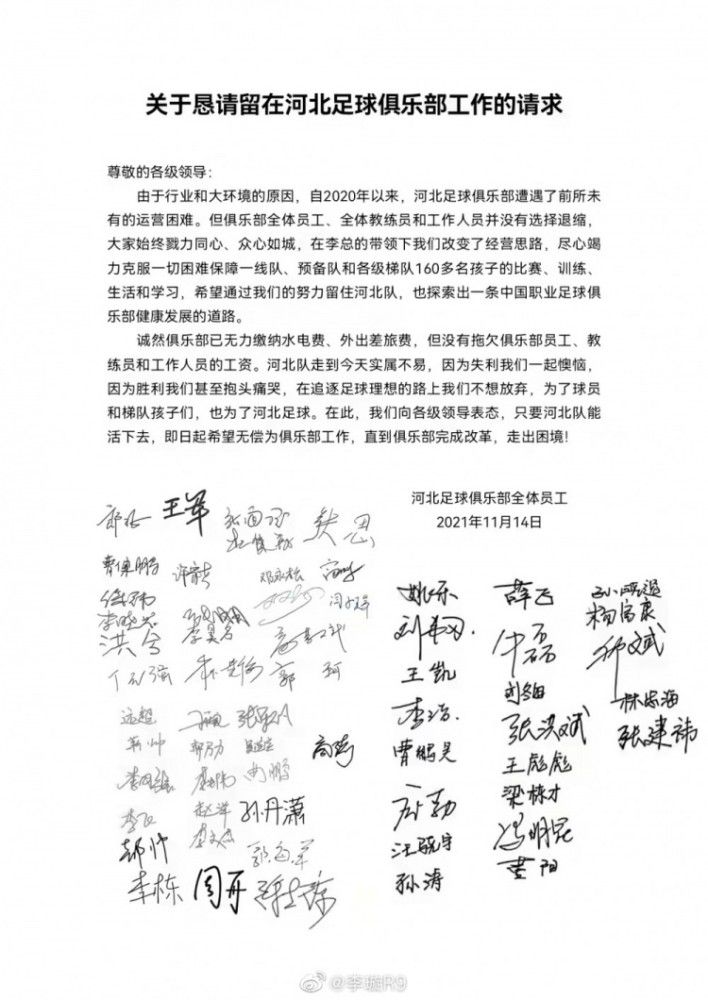 关于恳请留在河北足球俱乐部工作的请求
尊敬的各级领导：
由于行业和大环境的原因，自2020年以来，河北足球俱乐部遭遇了前所未
有的运营困难。但俱乐部全体员工、全体教练员和工作人员并没有选择退缩，
大家始终戮力同心、众心如城，在李总的带领下我们改变了经营思路，尽心竭
力克服一切困难保障一线队、预备队和各级梯队160多名孩子的比赛、训练、
生活和学习，希望通过我们的努力留住河北队，也探索出一条中国职业足球俱
乐部健康发展的道路。
诚然俱乐部已无力缴纳水电费、外出差旅费，但没有拖欠俱乐部员工、教
练员和工作人员的工资。河北队走到今天实属不易，因为失利我们一起懊恼，
因为胜利我们甚至抱头痛哭，在追逐足球理想的路上我们不想放弃，为了球员
和梯队孩子们，也为了河北足球。在此，我们向各级领导表态，只要河北队能
活下去，即日起希望无偿为俱乐部工作，直到俱乐部完成改革，走出困境！
河北足球俱乐部全体员工
2021年11月14日
王军
曹保鹏
洪兮
郭珂
姚乐
薛飞
杨富康
王凯
李浩
曹鹏昊
张洪斌
林忠海
张建祎
王彪彪
梁栋才
汪骁宇
冯明昆
孙涛
黄阳
远超
靳帅
高蕾
赵洋
孙丹潇
郝帅
郭海军
李栋
周开
@李璇R9